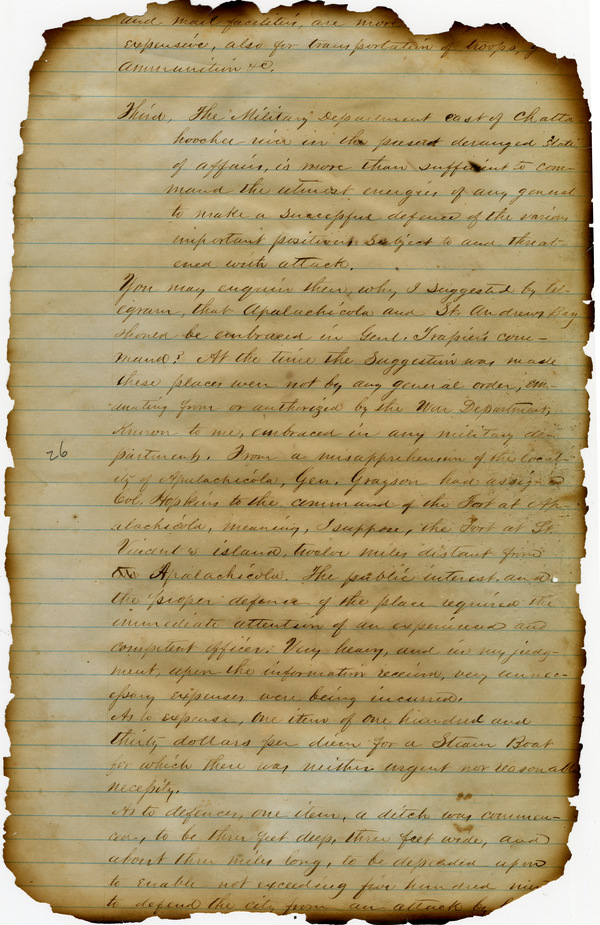 and mail facilities, are more
expensive, also for transportation of troops,
ammunition &c.
Third, The Military Department east of Chatta
hoochee river in the present deranged state
of affairs, is more than sufficient to com-
mand the utmost energies of any general
to make a successful defence of the various
important positions subject to and threat-
ened with attack.
You may enquire then, why, I suggested by tel-
egram, that Apalachicola and St. Andrews Bay
should be embraced in Genl. Trapier's com-
mand? At the time the suggestion was made
these places were not by any general order, ema-
nating from or authorized by the War Department,
known to me, embraced in any military de-
partment. From a misapprehension of the local-
ity of Apalachicola, Gen. Grayson had assigned
Col. Hopkins to the command of the Fort at Ap-
alachicola, meaning, I suppose, the Fort at St.
Vincent's island, twelve miles distant from
Apalachicola. The public interest and
the proper defence of the place required the
immediate attention of an experienced and
competent officer. Very heavy, and in my judg-
ment, upon the information received, very unnec-
essary expenses were being incurred.
26
As to expense, one item of one hundred and
thirty dollars per diem for a Steam Boat
for which there was neither urgent nor reasonable
necessity.
As to defences, one item, a ditch was commen-
ced, to be three feet deep, three feet wide, and
about three miles long, to be depended upon
to enable not exceeding five hundred men
to defend the city from an attack by